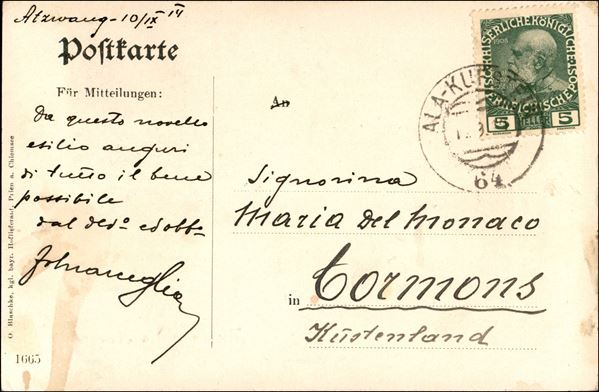 Atzwang - 10/IX 14
Postkarte
Für Mitteilungen:
da questo novello
esilio auguri
di tutto il bene
possibile
dal dev.º ed obb.º
An
Signorina
Maria del Monaco
in Cormons
Küstenland
KAISERLICHE KÖNIGLICHE
ÖSTERREICHISCHE POST
1908
5 HELLER 5
ALA-KUFSTEIN
64
O. Blaschke, kgl. bayr. Hofliferant, Prien a. Chiemsee
1665